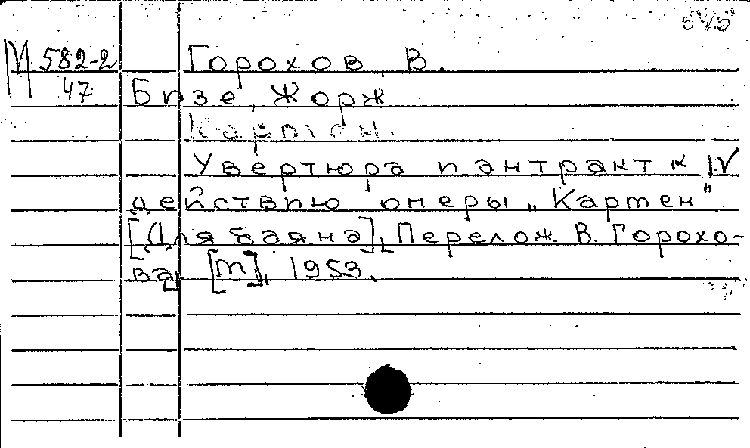 М 582-2
47
Горохов, В.
Бизе, Жорж
Кармен.
Увертюра и антракт к IV
действию оперы „Кармен"
[Для баяна]. Перелож. В. Горохо-
ва. [М], 1953.